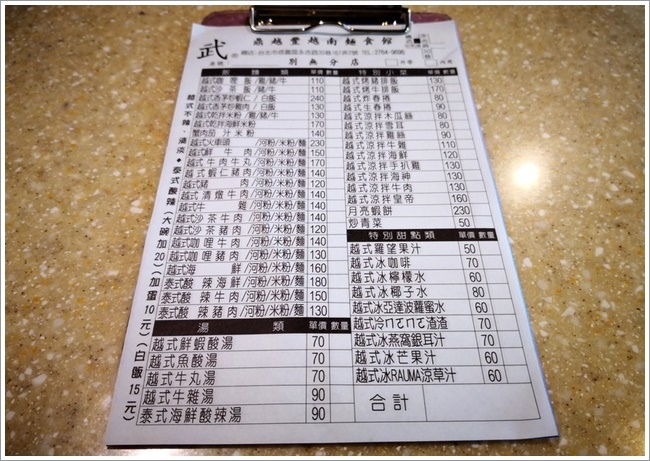 鼎越豐越南麵食館
武
別無分店
飯麵類 單價 數量
越式咖哩飯/雞/豬/牛 110
越式沙茶飯/豬/牛 110
越式香茅炒蝦仁/白飯 240
越式香茅炒雞肉/白飯 130
越式乾拌米粉/雞/豬/牛 130
越式乾拌海鮮米粉 170
蟹肉茄汁米粉 140
越式火車頭/河粉/米粉/麵 230
越式鮮牛肉/河粉/米粉/麵 150
越式牛肉牛丸/河粉/米粉/麵 150
越式蝦仁豬肉/河粉/米粉/麵 140
越式豬肉/河粉/米粉/麵 120
越式清燉牛肉/河粉/米粉/麵 140
越式牛雜/河粉/米粉/麵 140
越式沙茶牛肉/河粉/米粉/麵 140
越式沙茶豬肉/河粉/米粉/麵 120
越式咖哩牛肉/河粉/米粉/麵 140
越式咖哩豬肉/河粉/米粉/麵 130
越式海鮮/河粉/米粉/麵 160
泰式酸辣海鮮/河粉/米粉/麵 180
泰式酸辣牛肉/河粉/米粉/麵 150
泰式酸辣豬肉/河粉/米粉/麵 130
湯類 單價 數量
越式鮮蝦酸湯 70
越式魚酸湯 70
越式牛丸湯 70
越式牛雜湯 90
泰式海鮮酸辣湯 90
特別小菜 單價 數量
越式烤豬排飯 130
越式烤牛排飯 170
越式炸春捲 80
越式生春捲 90
越式涼拌木瓜絲 80
越式涼拌雪耳 80
越式涼拌雞絲 90
越式涼拌牛雜 110
越式涼拌海鮮 120
越式涼拌手扒雞 130
越式涼拌海神 130
越式涼拌牛肉 130
越式涼拌皇帝 160
月亮蝦餅 230
炒青菜 50
特別甜點類 單價 數量
越式羅望果汁 50
越式冰咖啡 70
越式冰檸檬水 60
越式冰椰子水 80
越式冰亞達波蘿蜜水 60
越式冷ㄇㄛㄇㄛ渣渣 70
越式冰燕窩銀耳汁 70
越式冰芒果汁 60
越式冰RAUMA涼草汁 60
合計
越式不辣、清淡●泰式酸辣(大碗加20)(加蛋10元)(白飯15元)